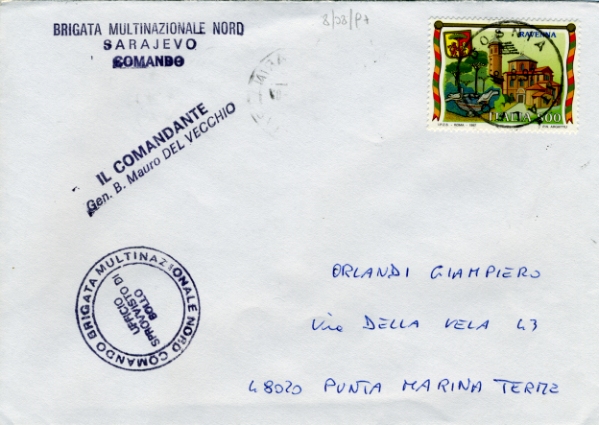 BRIGATA MULTINAZIONALE NORD
SARAJEVO
COMANDO
IL COMANDANTE
Gen. B. Mauro DEL VECCHIO
RAVENNA
ITALIA 800
BRIGATA MULTINAZIONALE NORD COMANDO
UFFICIO
SPROVVISTO DI
BOLLO
ORLANDI GIAMPIERO
Via DELLA VELA 43
48020 PUNTA MARINA TERME